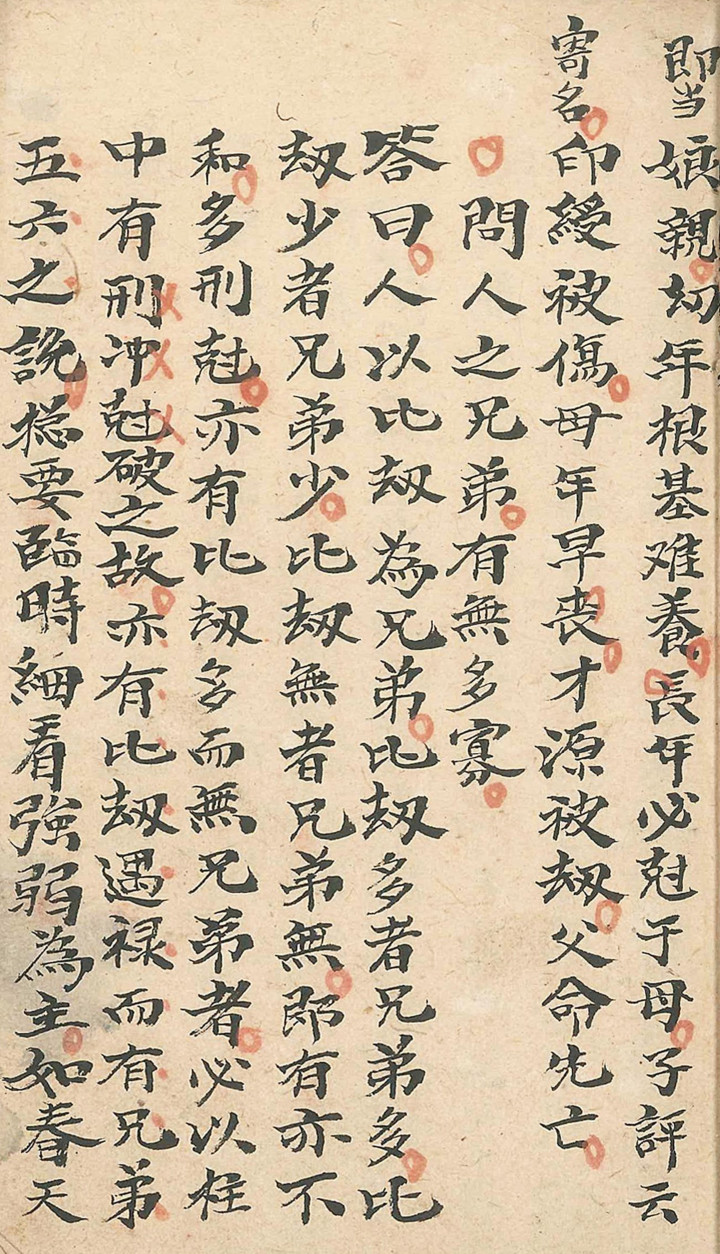 即当娘親幼年根基难養長年必尅于母子評云
寄名印綬被傷母年早丧才源被刼父命先亡
問人之兄弟有無多寡
答曰人以比刼為兄弟比刼多者兄弟多比
刼少者兄弟少比刼無者兄弟無即有亦不
和多刑尅亦有比刼多而無兄弟者必以柱
中有刑冲尅破之故亦有比刼遇禄而有兄弟
五六之説揔要臨時細看強弱為主如春天